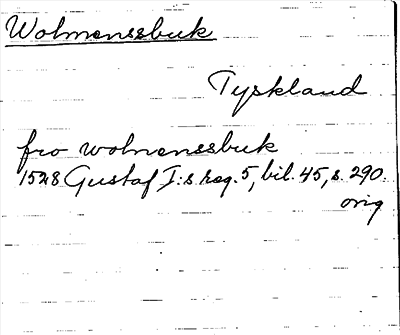 Wolmenssbuk
Tyskland
fro wolmenssbuk
1528 Gustaf I:s reg. 5, bil. 45, s. 290.
orig